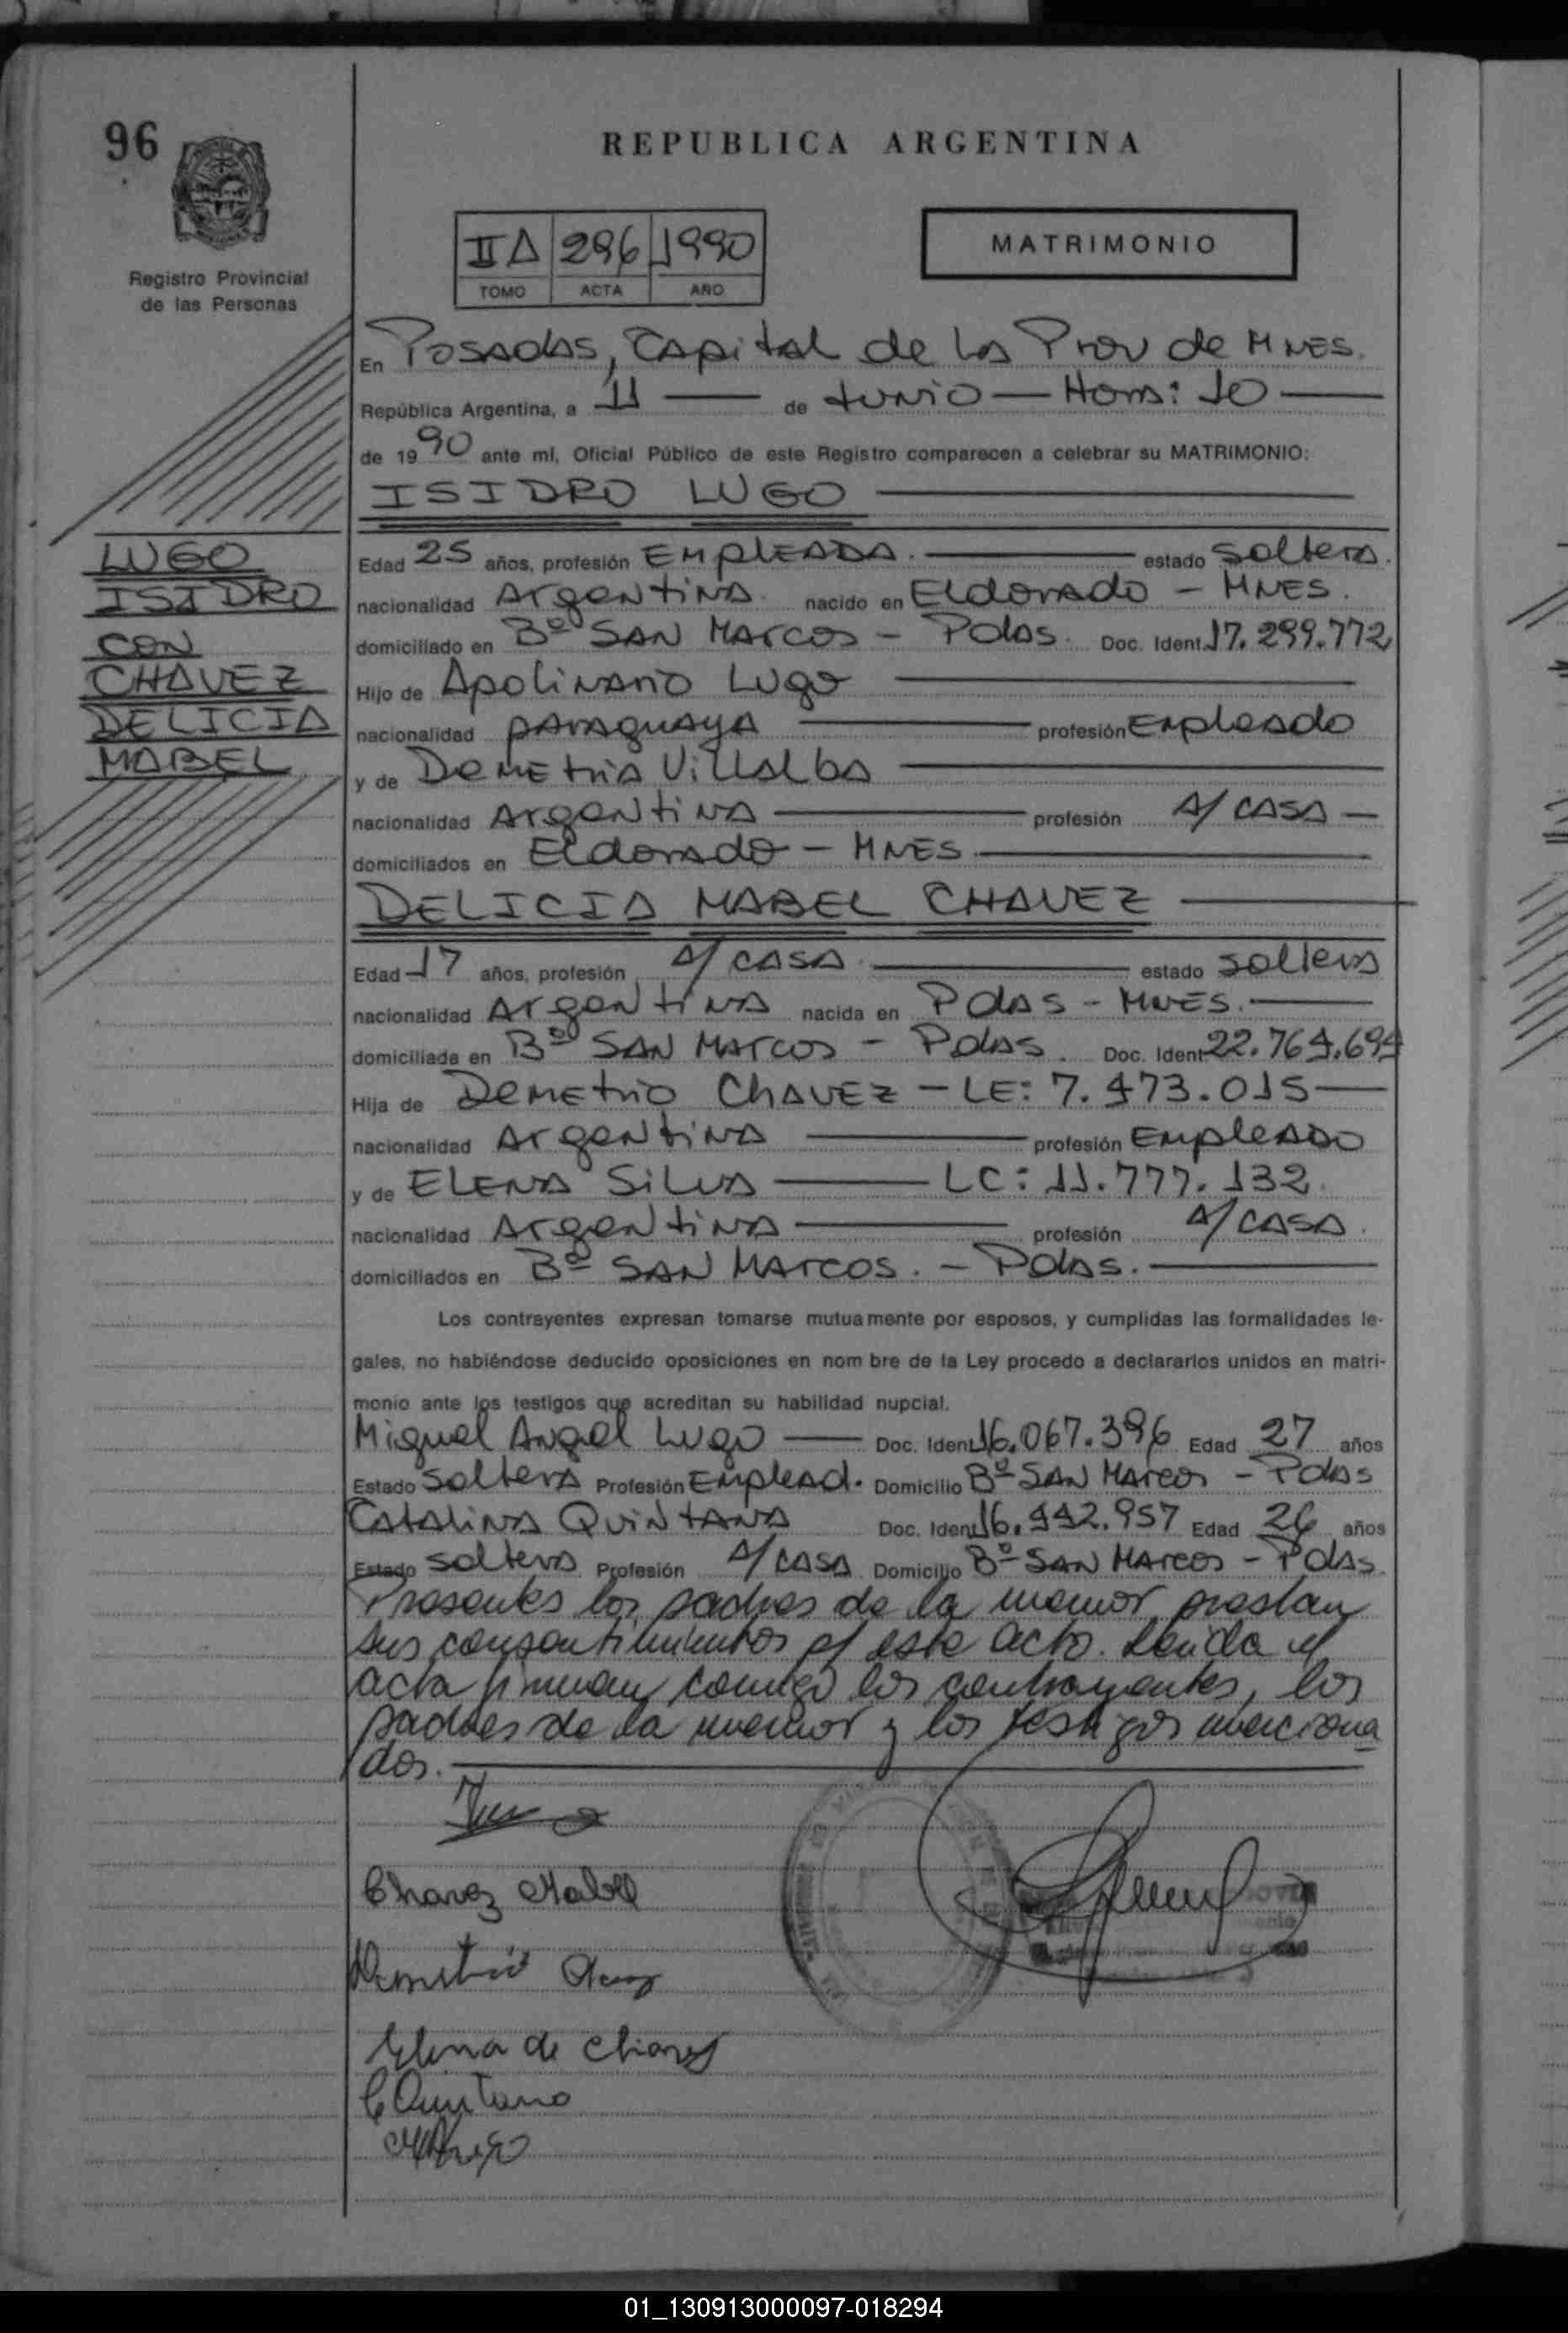 96
REPUBLICA ARGENTINA
Registro Provincial
de las Personas
IIA 296 1990
TOMO ACTA AÑO
MATRIMONIO
En Posadas, Capital de la Prov de MNES.
República Argentina, a 11 de Junio — Hora: 10
de 1990 ante mí, Oficial Público de este Registro comparecen a celebrar su MATRIMONIO:
ISIDRO LUGO
LUGO
ISIDRO
CON
CHAVEZ
DELICIA
MABEL
Edad 25 años, profesión EMPLEADA. estado Soltera.
nacionalidad Argentina. nacido en Eldorado - MNES.
domiciliado en Bº SAN MARCOS - Pdas. Doc. Ident. 17.299.772
Hijo de Apolinario Lugo
nacionalidad paraguaya profesión Empleado
y de Demetria Villalba
nacionalidad Argentina profesión A/ CASA —
domiciliados en Eldorado - MNES
DELICIA MABEL CHAVEZ
Edad 17 años, profesión A/ CASA. estado soltera
nacionalidad Argentina nacida en Pdas - MNES.
domiciliada en Bº SAN MARCOS - Pdas. Doc. Ident. 22.764.694
Hija de Demetrio Chavez - LE: 7.473.015
nacionalidad Argentina profesión Empleado
y de ELENA Silva LC: 11.777.132
nacionalidad Argentina profesión A/ CASA.
domiciliados en Bº SAN MARCOS. - Pdas.
Los contrayentes expresan tomarse mutuamente por esposos, y cumplidas las formalidades le-
gales, no habiéndose deducido oposiciones en nom bre de la Ley procedo a declararlos unidos en matri-
monio ante los testigos que acreditan su habilidad nupcial.
Miguel Angel Lugo Doc. Ident. 16.067.396 Edad 27 años
Estado Soltera Profesión Emplead. Domicilio Bº SAN Marcos - Pdas
Catalina Quintana Doc. Ident. 16.442.957 Edad 26 años
Estado soltera Profesión A/ CASA Domicilio Bº SAN Marcos - Pdas.
Presentes los padres de la menor prestan
sus consentimientos p/ este acto. Leída el
acta firman conmigo los contrayentes, los
padres de la menor y los testigos menciona
dos.
Chavez Mabel
Demetrio
Elena de Chavez
C Quintana
01_130913000097-018294